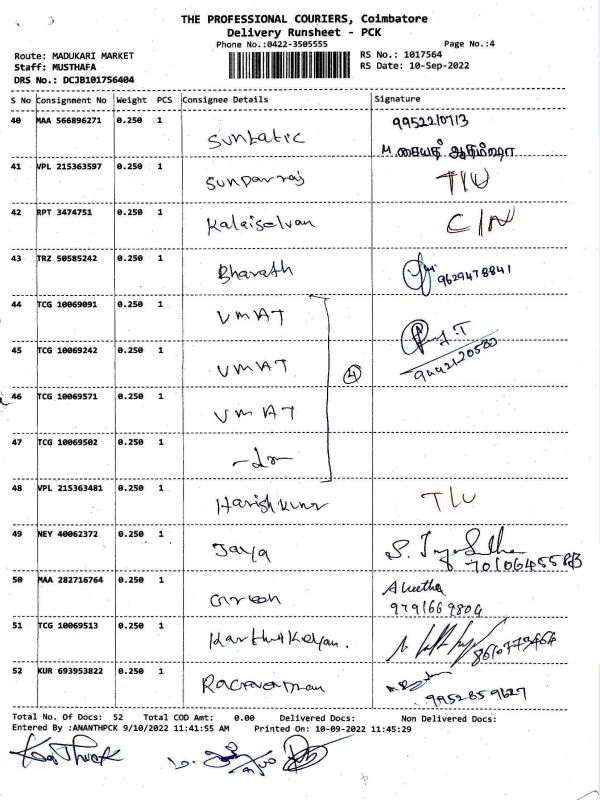 THE PROFESSIONAL COURIERS, Coimbatore
Delivery Runsheet - PCK
Phone No.:0422-3505555 Page No.:4
Route: MADUKARI MARKET RS No.: 1017564
Staff: MUSTHAFA RS Date: 10-Sep-2022
DRS No.: DCJB101756404
S No Consignment No Weight PCS Consignee Details Signature
40 MAA 566896271 0.250 1 9952210713
M.
41 VPL 215363597 0.250 1 Sunparraj T/U
42 RPT 3474751 0.250 1 Kalaiselvan C/N
43 TRZ 50585242 0.250 1 Bharath 9629478841
44 TCG 10069091 0.250 1 VMAT
45 TCG 10069242 0.250 1 VMAT 4 9442120580
46 TCG 10069571 0.250 1 VMAT
47 TCG 10069502 0.250 1 -do-
48 VPL 215363481 0.250 1 Harish kumr T/U
49 NEY 40062372 0.250 1 Jaya
50 MAA 282716764 0.250 1 Aneetha
9791669804
51 TCG 10069513 0.250 1 8610773464
52 KUR 693953822 0.250 1 9952859627
Total No. Of Docs: 52 Total COD Amt: 0.00 Delivered Docs: Non Delivered Docs:
Entered By :ANANTHPCK 9/10/2022 11:41:55 AM Printed On: 10-09-2022 11:45:29